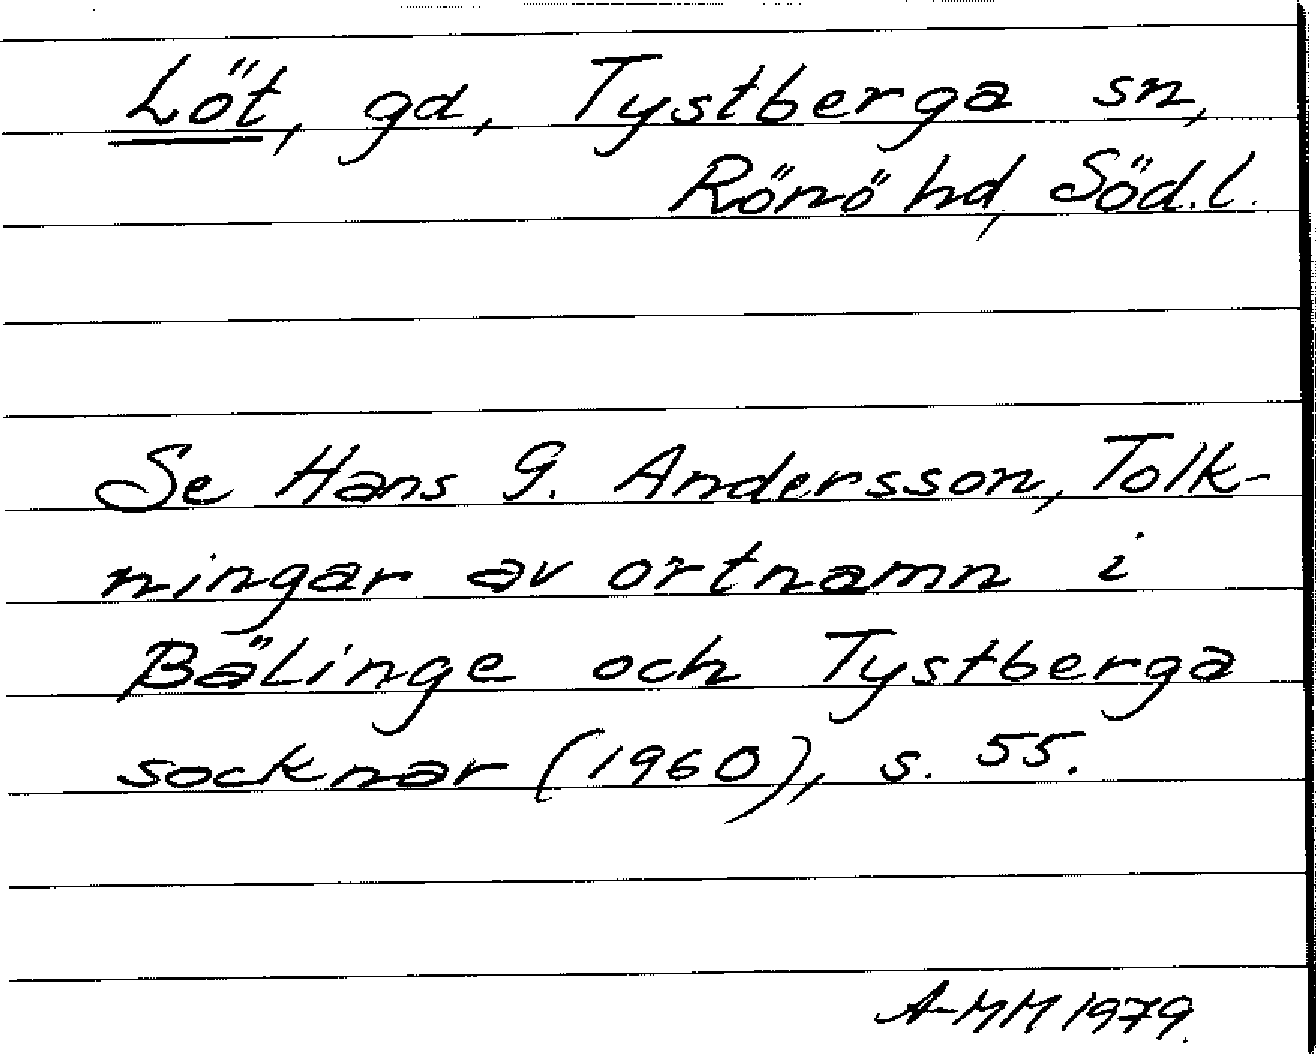 Löt, gd, Tystberga sn,
Rönö hd, Söd.l.
Se Hans G. Andersson, Tolk-
ningar av ortnamn i
Bälinge och Tystberga
socknar (1960), s. 55.
A-MM 1979.